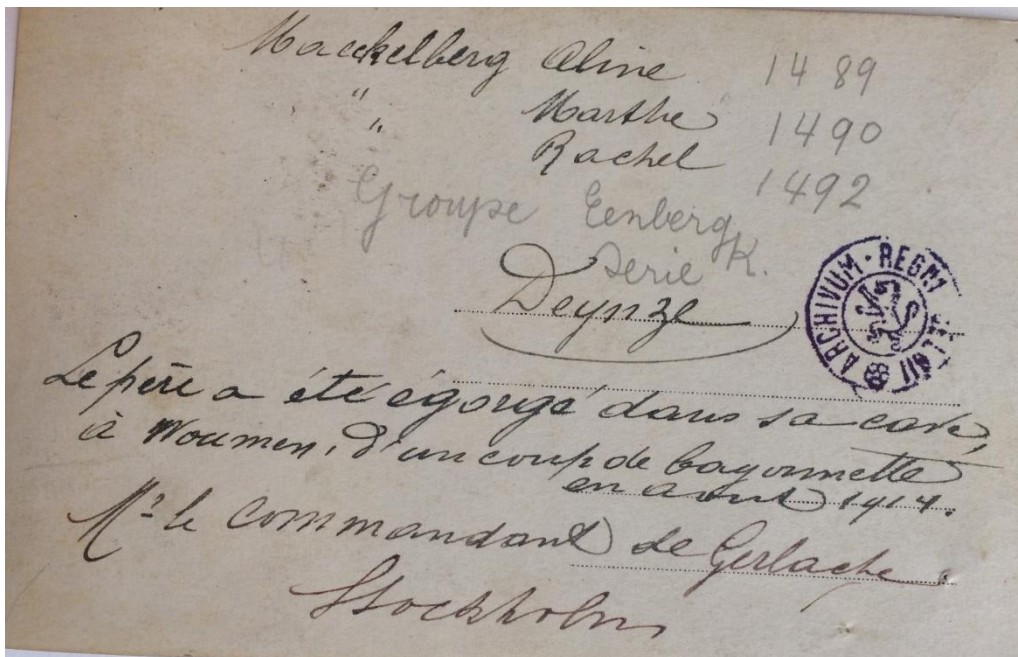 Maeckelberg Aline 1489
" Marthe 1490
" Rachel 1492
Groupe Eenberg
Serie K.
Deynze
ARCHIVUM · REGNI
Le père a été égorgé dans sa cave,
à Woumen, d'un coup de bayonnette
en aout 1914.
Mr le Commandant de Gerlache
Stockholm